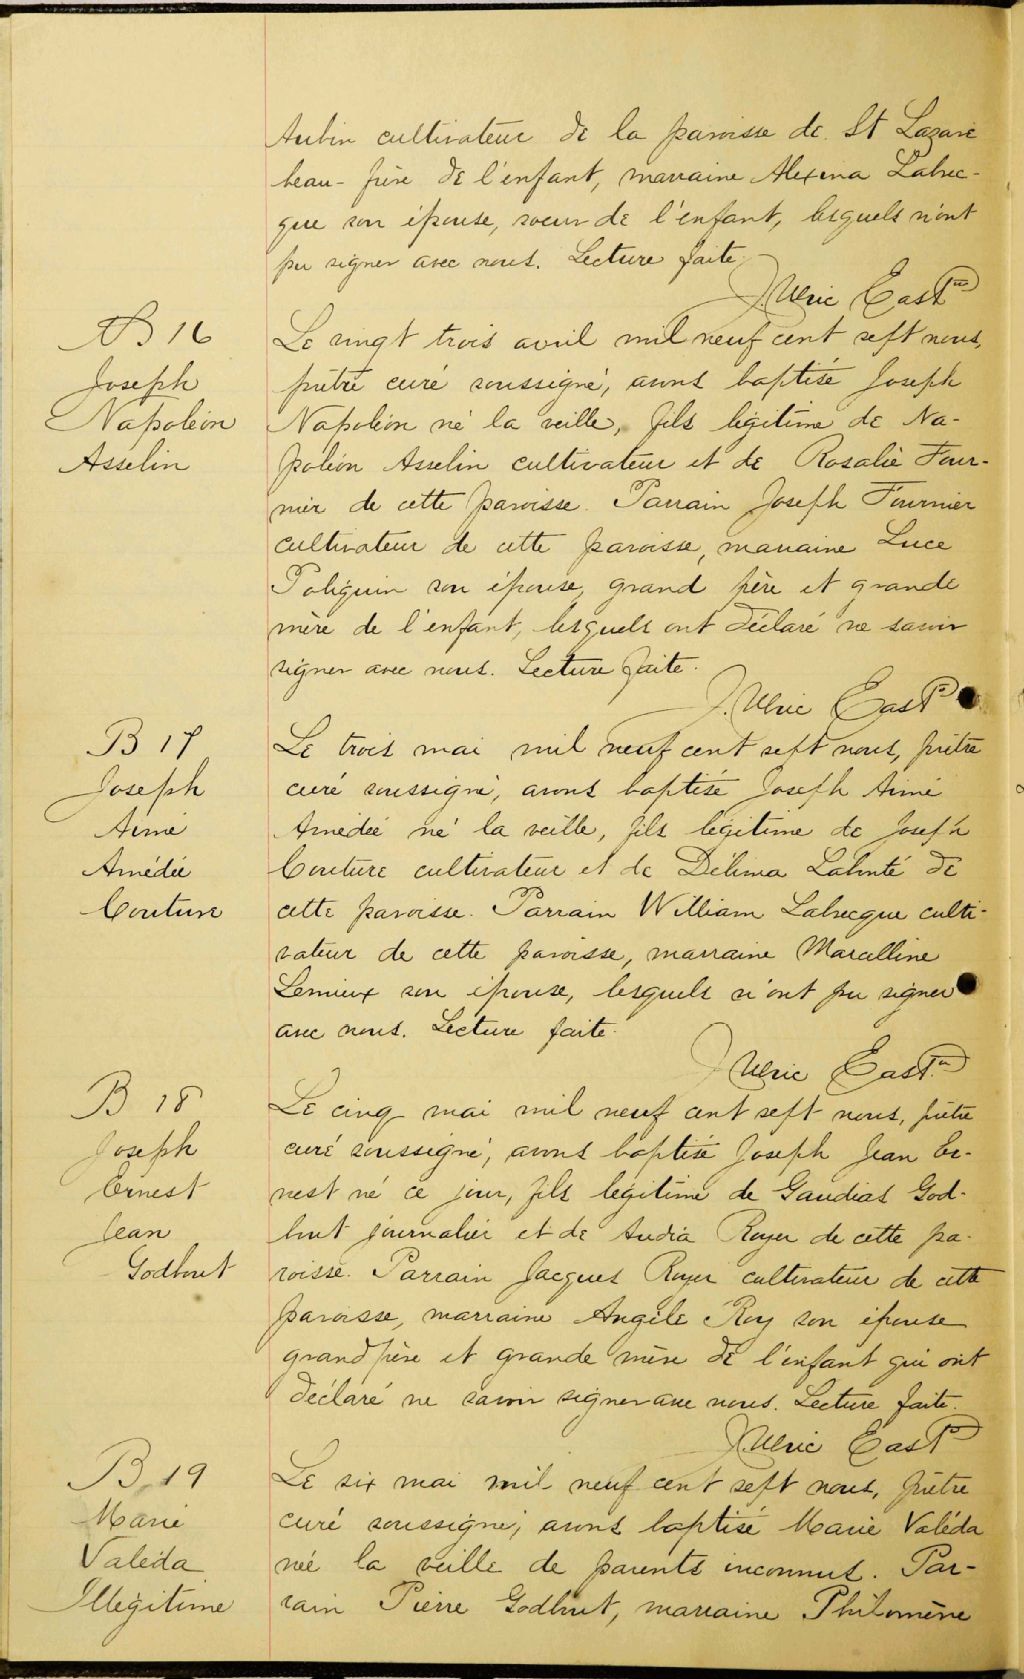 Aubin cultivateur de la paroisse de St Lazare
beau-frère de l'enfant, marraine Alexina Labrec-
que son épouse, soeur de l'enfant, lesquels n'ont
pu signer avec nous. Lecture faite.
J. Ulric East Ptre
B 16
Joseph
Napoléon
Asselin
Le vingt trois avril mil neuf cent sept nous,
prêtre curé soussigné, avons baptisé Joseph
Napoléon né la veille, fils légitime de Na-
poléon Asselin cultivateur et de Rosalie Four-
nier de cette paroisse. Parrain Joseph Fournier
cultivateur de cette paroisse, marraine Luce
Poliquin son épouse, grand père et grande
mère de l'enfant, lesquels ont déclaré ne savoir
signer avec nous. Lecture faite.
J. Ulric East P
B 17
Joseph
Aimé
Amédée
Couture
Le trois mai mil neuf cent sept nous, prêtre
curé soussigné, avons baptisé Joseph Aimé
Amédée né la veille, fils légitime de Joseph
Couture cultivateur et de Délima Labonté de
cette paroisse. Parrain William Labrecque culti-
vateur de cette paroisse, marraine Marcelline
Lemieux son épouse, lesquels n'ont pu signer
avec nous. Lecture faite.
J Ulric East Ptre
B 18
Joseph
Ernest
Jean
Godbout
Le cinq mai mil neuf cent sept nous, prêtre
curé soussigné, avons baptisé Joseph Jean Er-
nest né ce jour, fils légitime de Gaudias God-
bout journalier et de Audia Royer de cette pa-
roisse. Parrain Jacques Royer cultivateur de cette
paroisse, marraine Angèle Roy son épouse
grand père et grande mère de l'enfant qui ont
déclaré ne savoir signer avec nous. Lecture faite.
J. Ulric East P
B 19
Marie
Valéda
Illégitime
Le six mai mil neuf cent sept nous, prêtre
curé soussigné, avons baptisé Marie Valéda
née la veille de parents inconnus. Par-
rain Pierre Godbout, marraine Philomène